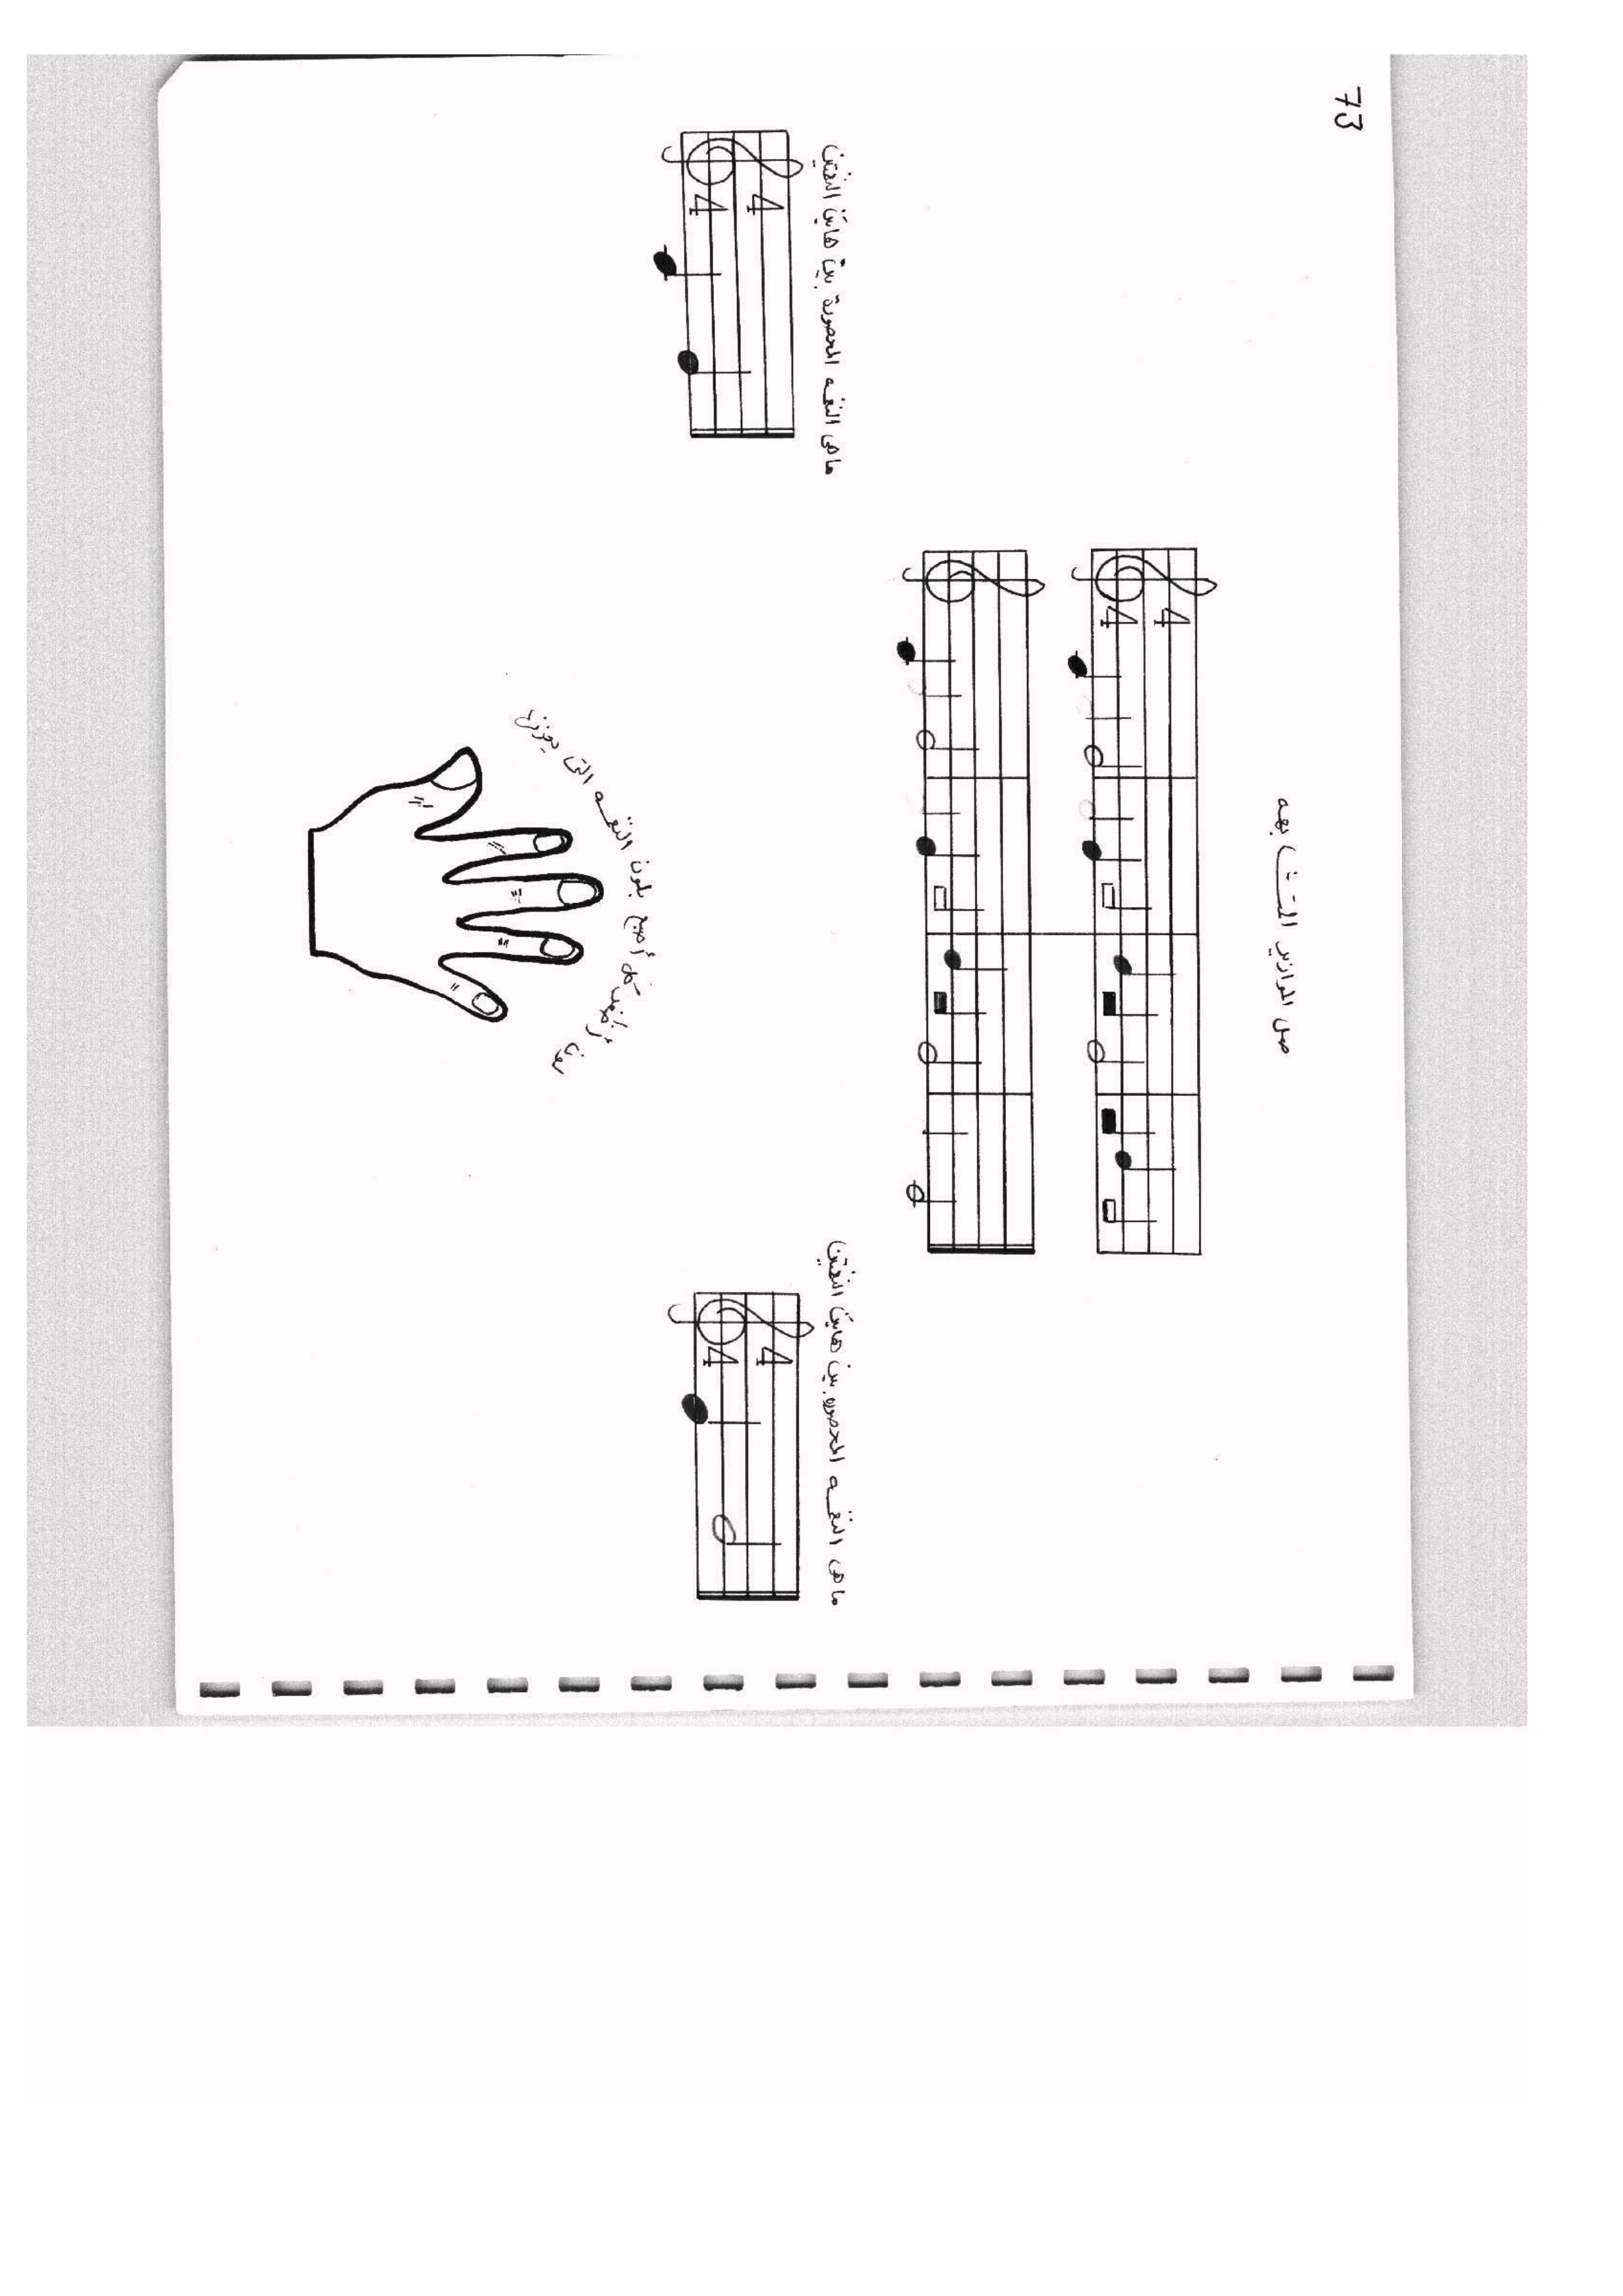 73
صل الموازير المتشابهه
4
4
ما هى النغمه المحصورة بين هاتين النغمتين
4
4
ما هى النغمه المحصوره بين هاتين النغمتين
4
4
لون ظفر كل أصبع بلون النغمه التى يعزفها